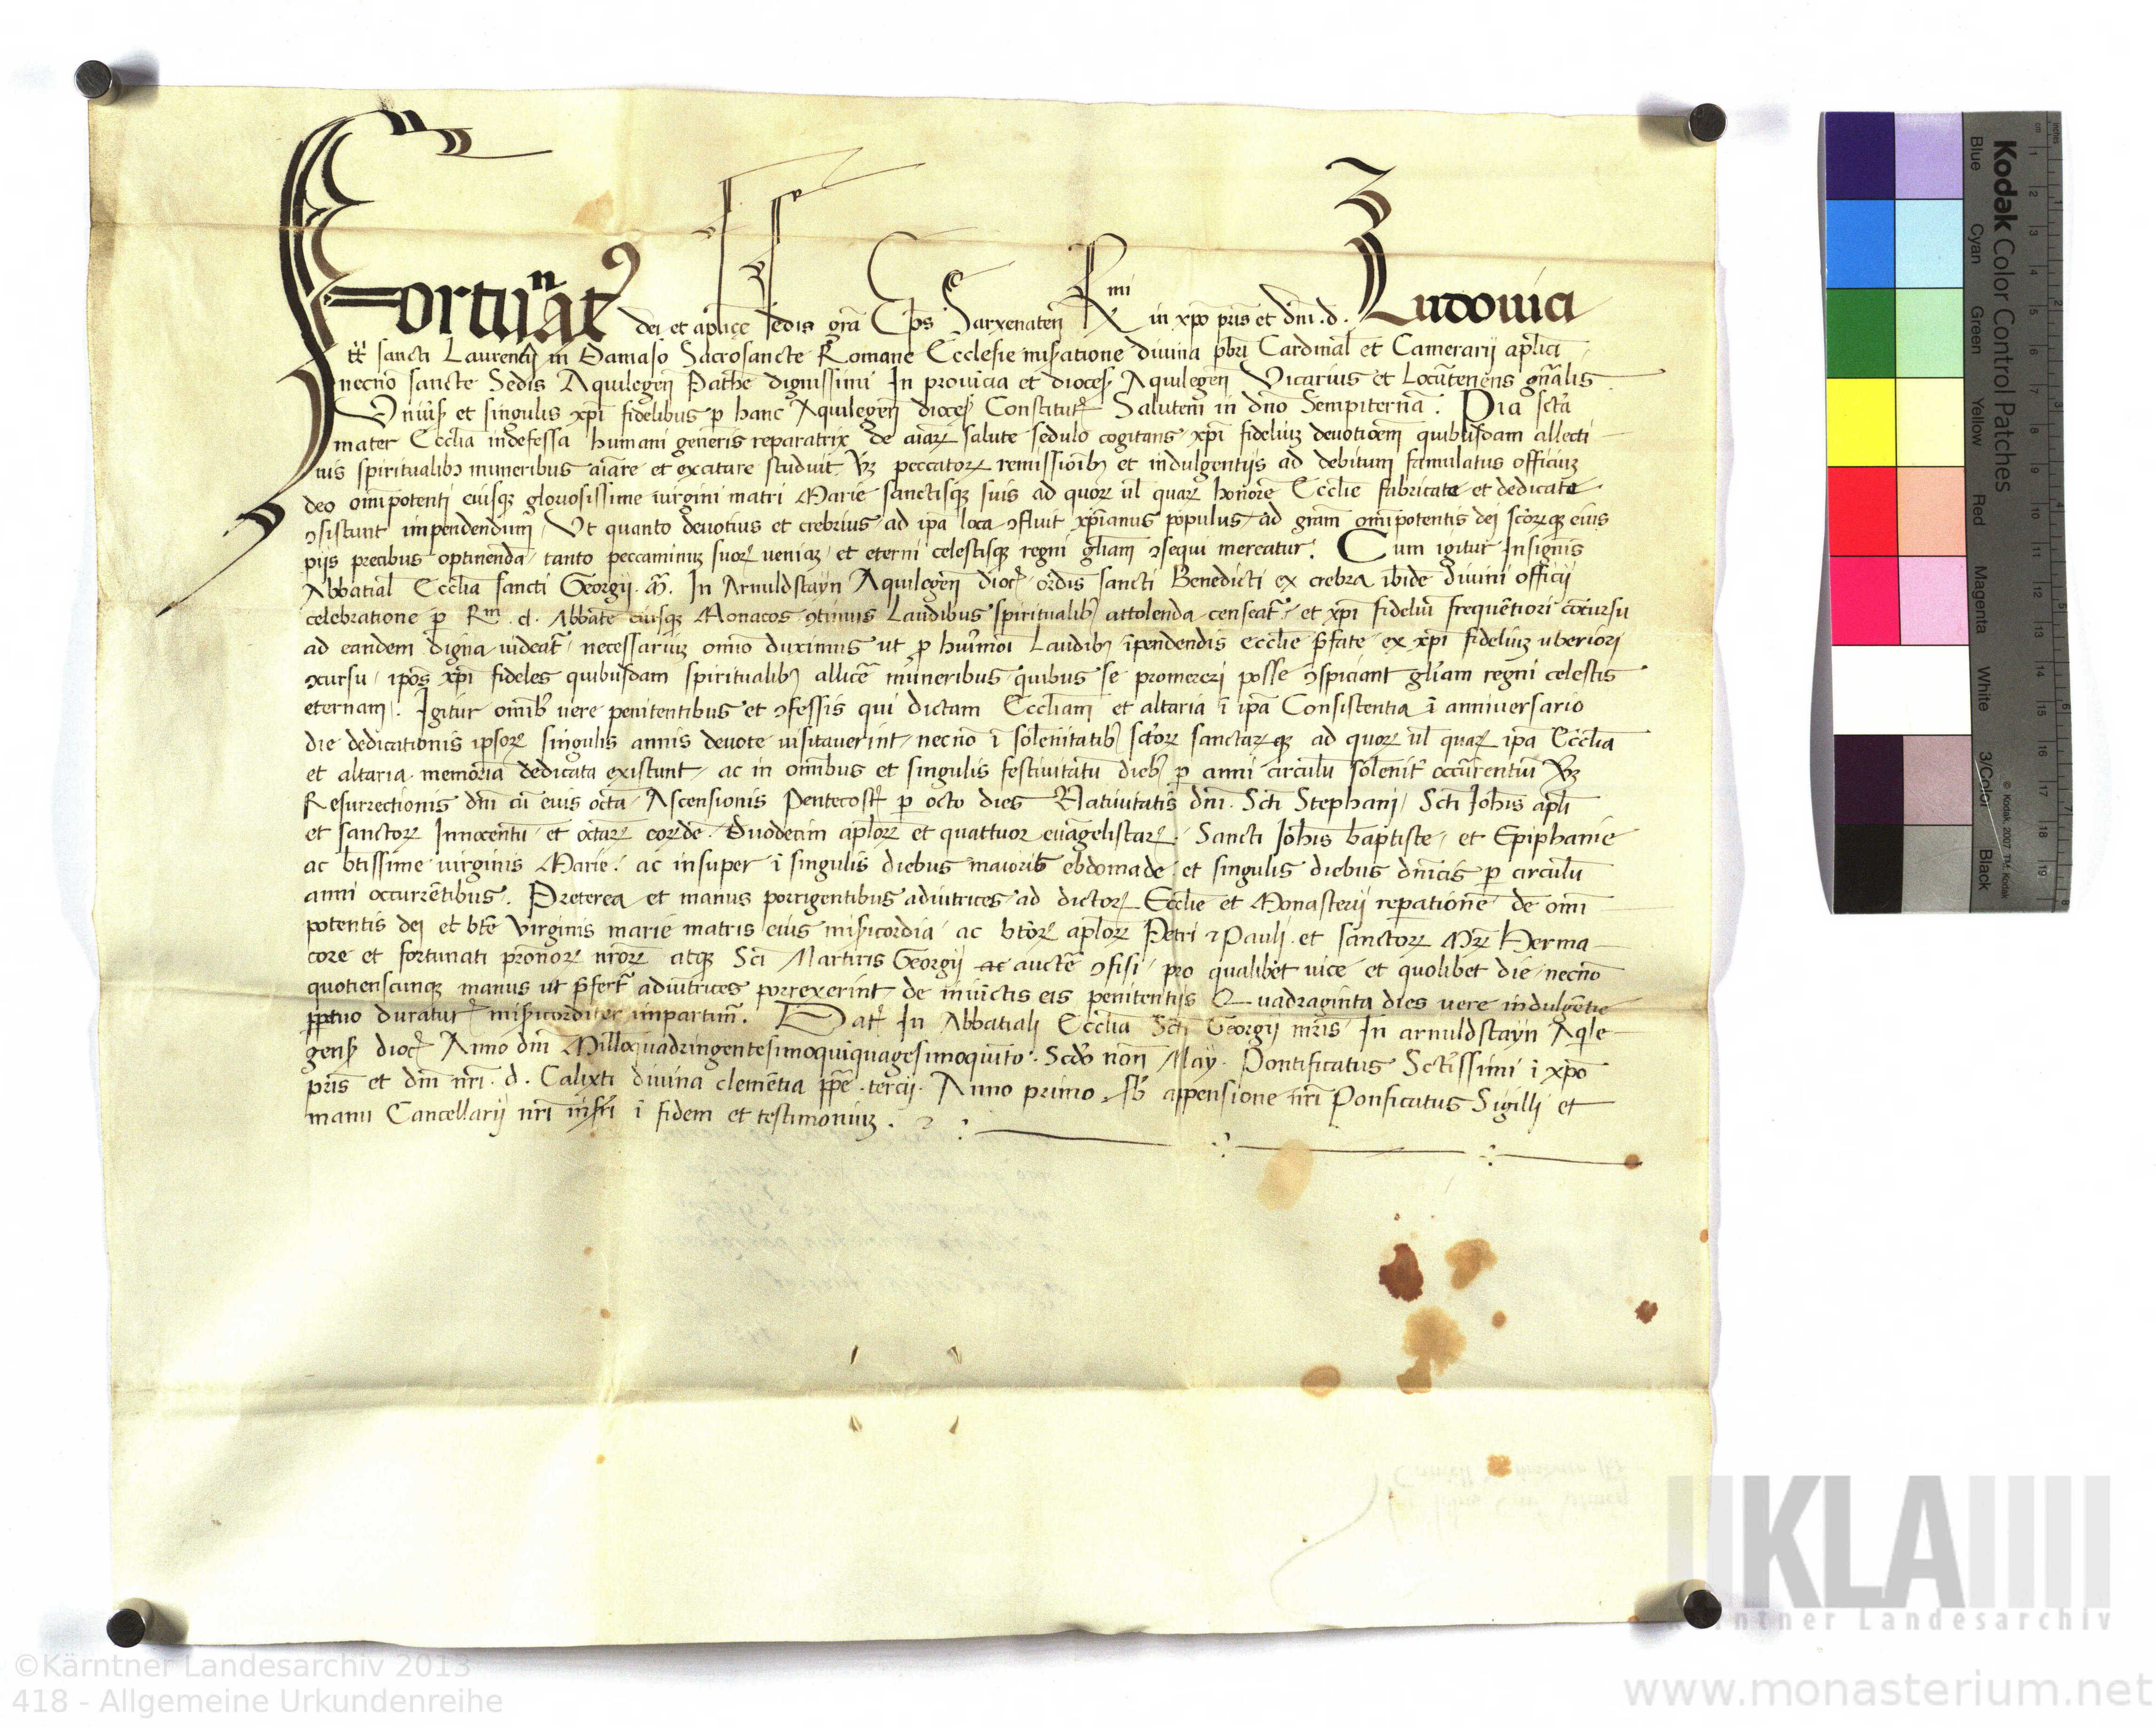 Fortunat9 dei et aplice sedis gra Eps Sarxenaten Rmi in xpo pris et dni. d. Ludouici
tt sancti Laurencij in Damaso Sacrosancte Romane Ecclesie misatione diuina pbri Cardinal et Camerarij aplici
necno sancte Sedis Aquilegen Pathe dignissimi In prouicia et dioces Aquilegen Vicarius et Locutenens gnalis
Vniuis et singulis xpi fidelibus p hanc Aquilegen dioces Constitut Salutem in dno Sempiterna. Pia scta
mater Ecclia indefessa humani generis reparatrix de aiar salute sedulo cogitans xpi fideliuz deuotioem quibusdam allecti
uis spiritualibz muneribus aiare et excitare studuit vz peccator remissioibz et indulgentijs ad debitum famulatus officiuz
deo omipotenti eiusqz gloriosissime uirgini matri Marie sanctisqz suis ad quor ul quar honore Ecclie fabricate et dedicate
9sistunt impendendum, Vt quanto deuotius et crebrius ad ipa loca 9fluit xpianus populus ad gram omipotentis dei scorqz eius
pijs precibus optinenda tanto peccaminuz suor ueniaz et eterni celestisqz regni gliam 9sequi mereatur. Cum igitur Insignis
Abbatial Ecclia sancti Georgij. M. In Arnuldstayn Aquilegen dioc ordis sancti Benedicti ex crebra ibide diuini officij
celebratione p Rm. d. Abbate eiusqz Monacos 9tinuis Laudibus spiritualibz attolenda censeat et xpi fideliu frequetiori cocursu
ad eandem digna uideat necessariuz omio duximus ut p huimoi Laudibz ipendendis ecclie pfate ex xpi fideliuz uberiori
9cursu ipos xpi fideles quibusdam spiritualibz allice muneribus quibus se promereri posse 9spiciant gliam regni celestis
eternam. Igitur omibz uere penitentibus et 9fessis qui dictam Eccliam et altaria i ipa Consistentia i anniuersario
die dedicationis ipsor singulis annis deuote uisitauerint necno i solenitatibz sctor sanctarqz ad quor ul quar ipa Ecclia
et altaria memoria dedicata existunt ac in omibus et singulis festiuitatu diebz p anni circulu solenit occurentiu vz
Resurrectionis dni cu euis octa Ascensionis Pentecost p octo dies Natiuitatis dni. Scti Stephani Scti Johis apli
et sanctor Innocentu et octar eorde. Duodecim aplor et quattuor euagelistar. Sancti Johis baptiste et Epiphanie
ac btissime uirginis Marie. ac insuper i singulis diebus maioris ebdomade et singulis diebus dnicis p circulu
anni occurretibus. Preterea et manus porrigentibus adiutrices ad dictor Ecclie et Monasterij repatione de omi
potentis dei et bte virginis marie matris eius misicordia ac btor aplor Petri et Pauli et sanctor Mr Herma
core et fortunati pronor nror atqz Sci Martiris Georgij aucte 9fisi pro qualibet uice et quolibet die necno
quotienscunqz manus ut pfert adiutrices porrexerint de iniuctis eis penitentijs Quadraginta dies uere indulgetie
pptuo duratur misicorditer impartim. Dat In Abbatiali Ecclia Scti Georgij mris In arnuldstayn Aqle
gens dioc Anno dni Milloquadringentesimoquiquagesimoquito. Scdo non May. Pontificatus Sctissimi i xpo
pris et dni nri. d. Calixti diuina clemetia ppe tercij. Anno primo, sb appensione nri Ponficatus Sigilli et
manu Cancellarij nri infri i fidem et testimoniuz.
Kodak Color Control Patches
© Kodak, 2007 TM: Kodak
Blue Cyan Green Yellow Red Magenta White 3/Color Black
KLA
Kärntner Landesarchiv
©Kärntner Landesarchiv 2013
418 - Allgemeine Urkundenreihe
www.monasterium.net